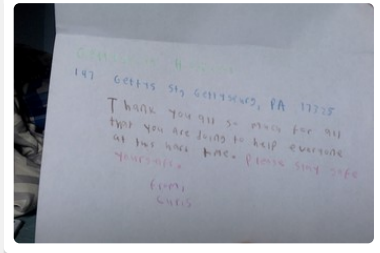 Gettysburg Hospital
147 Gettys St, Gettysburg, PA 17325
Thank you all so much for all
that you are doing to help everyone
at this hard time. Please stay safe
yourselves.
From,
Chris